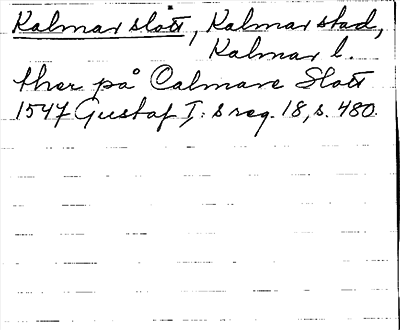 Kalmar slott, Kalmar stad,
Kalmar l.
ther på Calmare Slott
1547 Gustaf I: s reg. 18, s. 480.